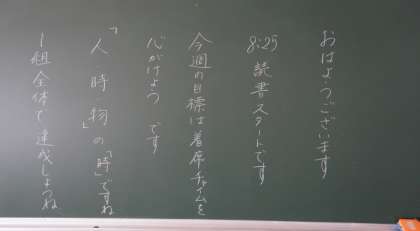 おはようございます
8:25 読書スタートです
今週の目標は着席チャイムを
心がけよう です
「人・時・物」の「時」ですね
1組全体で達成しようね